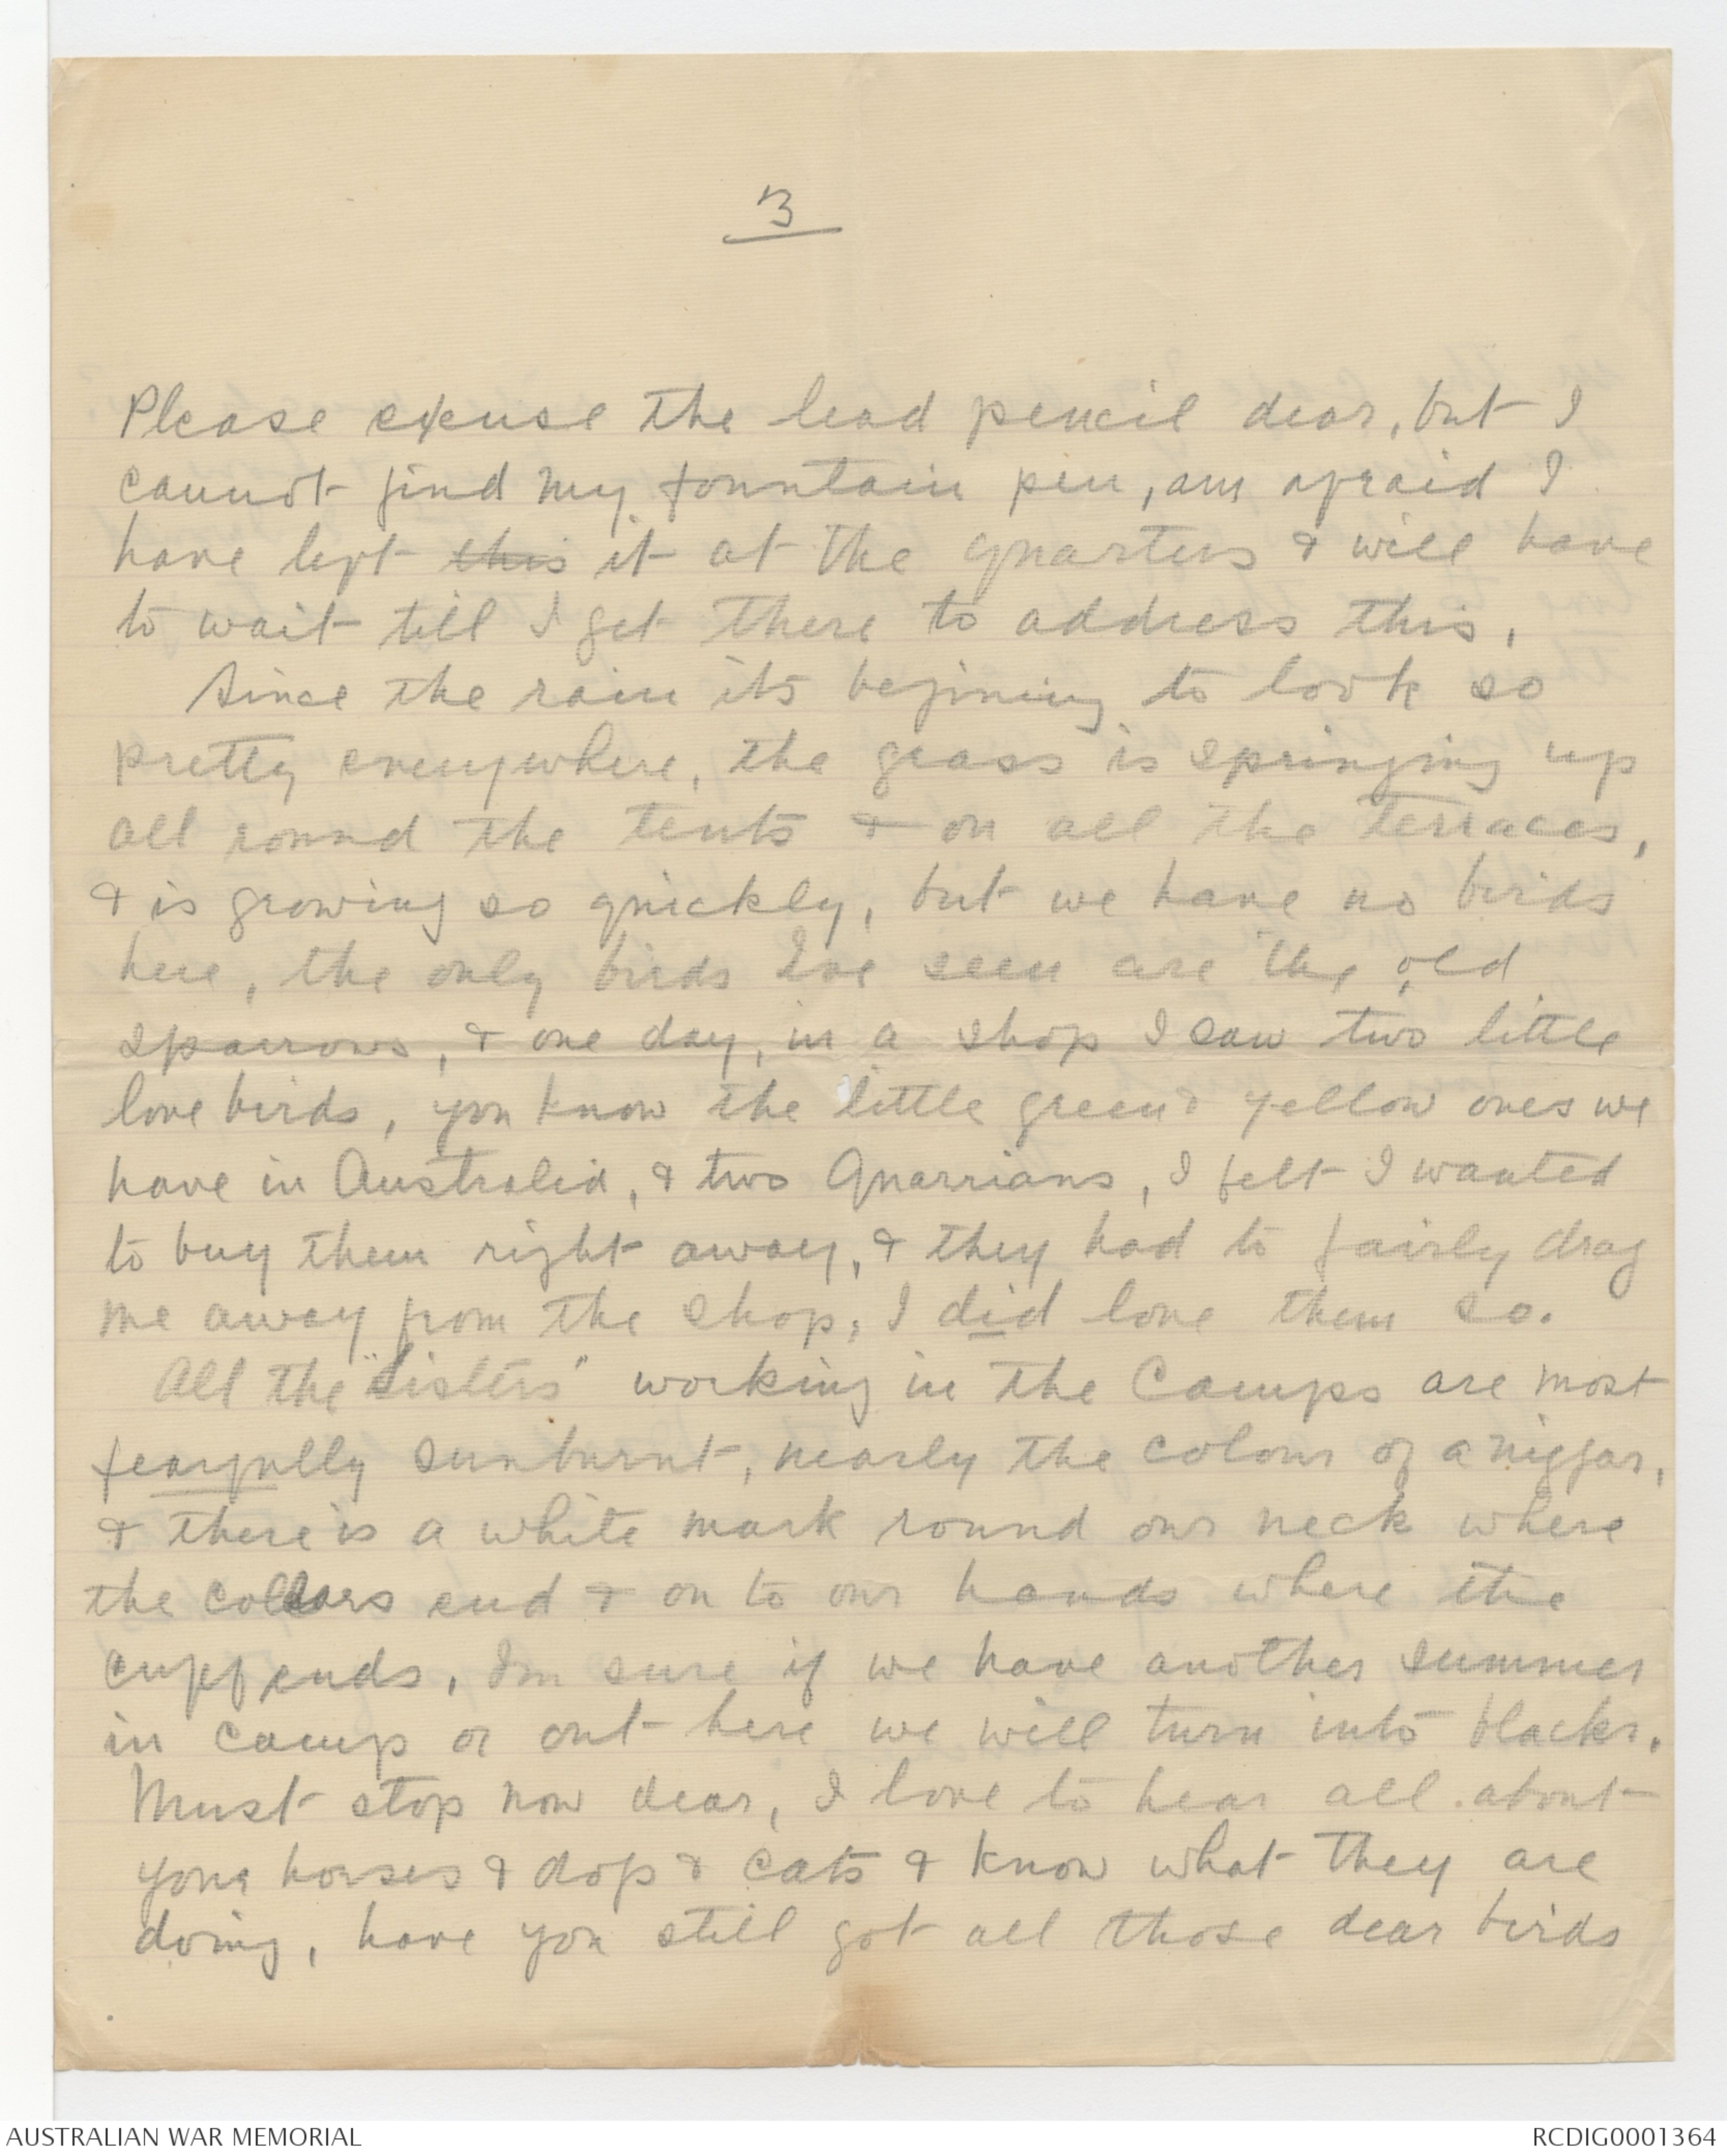 3
Please excuse the lead pencil dear, but I
cannot find my fountain pen, am afraid I
have left this it at the quarters & will have
to wait till I get there to address this.
Since the rain its begining to look so
pretty everywhere, the grass is springing up
all round the tents & on all the terraces,
& is growing so quickly, but we have no birds
here, the only birds Ive seen are the old
sparrows, & one day, in a shop I saw two little
love birds, you know the little green & yellow ones we
have in Australia, & two Quarrians, I felt I wanted
to buy them right away, & they had to fairly drag
me away from the shop, I did love them so.
All the "Sisters" working in the Camps are most
fearfully sunburnt, nearly the colour of a niggar,
& there is a white mark round our neck where
the collars end & on to our hands where the
cuff ends, Im sure if we have another summer
in camp or out here we will turn into blacks.
Must stop now dear, I love to hear all about
your horses & dogs & cats & know what they are
doing, have you still got all those dear birds
AUSTRALIAN WAR MEMORIAL
RCDIG0001364